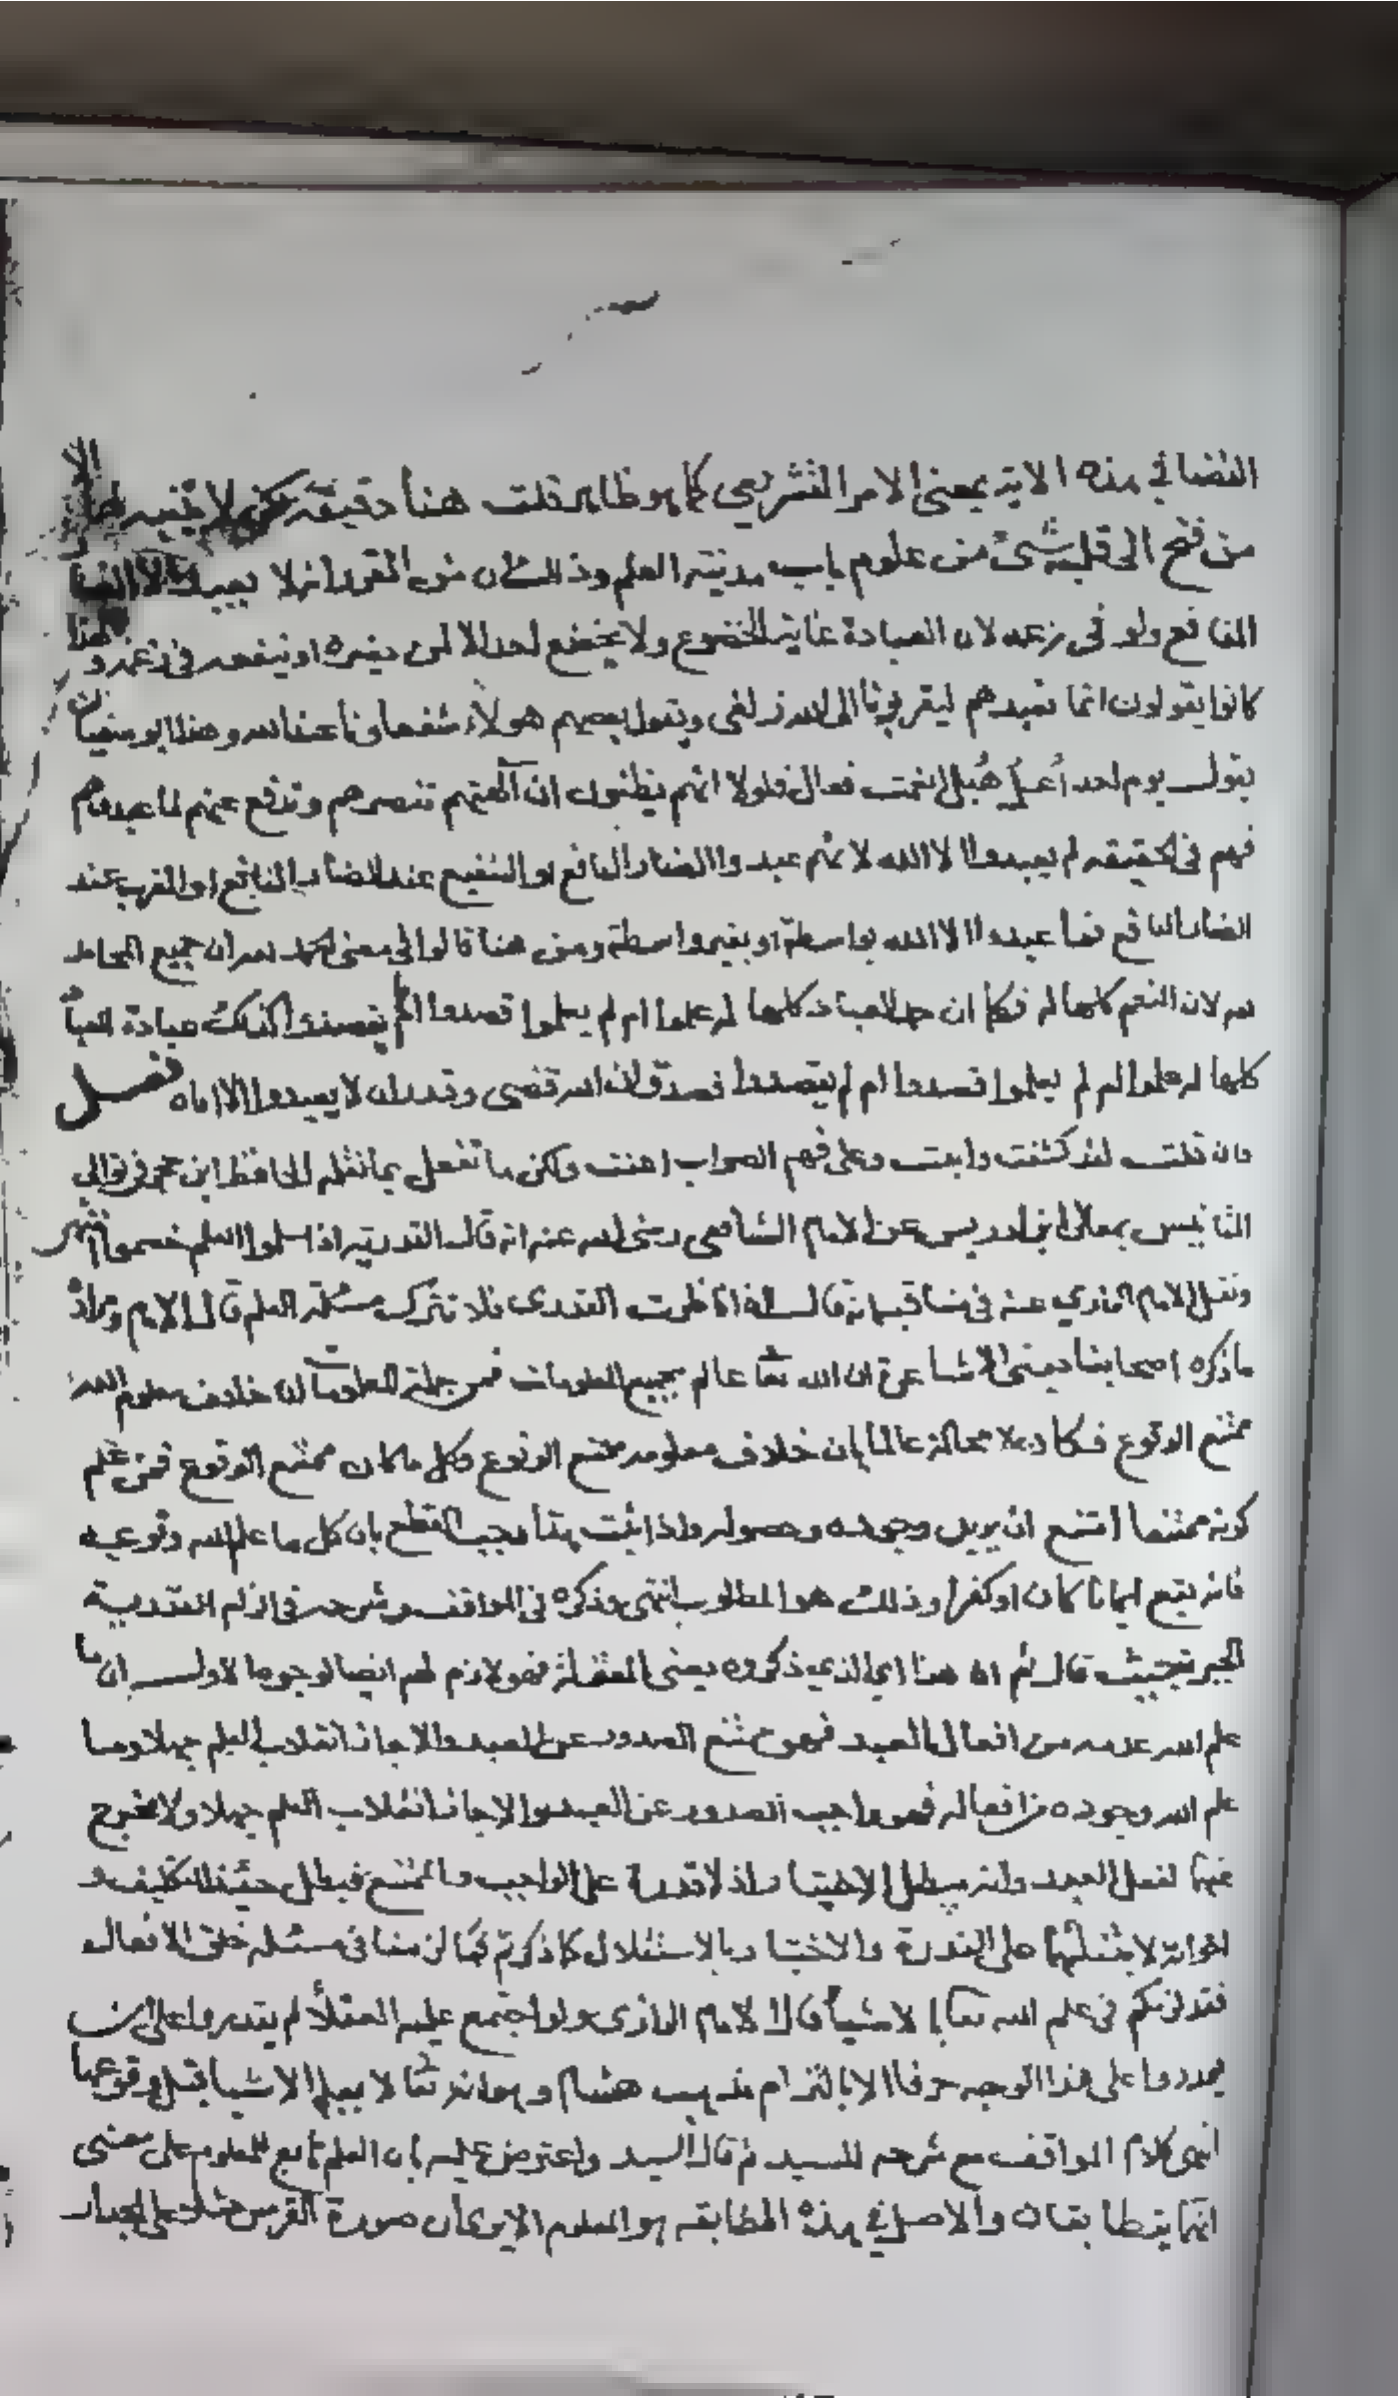 القضا في هذه الاية بمعنى الامر التشريعي كما هو ظاهر قلت هنا دقيقة لا يتنبه لها الا
من فتح الى قلبه شئ من علوم باب مدينة العلم وذلك ان من المقرر انه لا يعبد الا
النافع ولو في زعمه لان العبادة غاية الخضوع ولا يخضع احد الا لمن يضره او ينفعه في زعمه و لهذا
كانوا يقولون انما نعبدهم ليقربونا الى الله زلفى ويقول بعضهم هولاء شفعاونا عند الله وهذا ابو سفيان
يقول يوم احد أعل هبل انعمت فعال فلولا انهم يظنون ان آلهتهم تنصرهم وتدفع عنهم لما عبدوهم
فهم في الحقيقه لم يعبدوا الا الله لانهم عبدوا الضار النافع او الشفيع عند الضار النافع او المقرب عند
الضار النافع فما عبدوا الا الله بواسطة او بغير واسطة ومن هنا قالوا في معنى الحمد لله ان جميع المحامد
لله لان النعم كلها له فكما ان حمد العباد كلها له علموا ام لم يعلموا قصدوا ام لم يقصدوا كذلك عبادة العباد
كلها له علموا ام لم يعلموا قصدوا ام لم يقصدوا فصدق ان الله قضى وقدر ان لا يعبدوا الا اياه فصل
فان قلت لقد كشفت وابنت وعلى فهم الصواب اعنت ولكن ما تفعل بما نقله الحافظ ابن حجر في توالي
التانيس بمعالى ابن ادريس عن الامام الشافعي رضي الله عنه انه قال القدرية اذا سلموا العلم خصموا انتهى
ونقل الامام الرازي عنه في مناقبه انه قال اذا ناظرت القدرى فلا تترك مسئلة العلم قال الامام ومراده
ما ذكره اصحابنا يعني الاشاعرة ان الله تعا عالم بجميع المعلومات فمن جملة المعلومات ان خلاف معلوم الله
ممتنع الوقوع فكان لا محالة عالما بان خلاف معلومه ممتنع الوقوع وكل ما كان ممتنع الوقوع فمن علم
كونه ممتنعا امتنع ان يريد وجوده وحصوله واذا ثبت هذا وجب القطع بان كل ما علم الله وقوعه
فانه يقع ايمانا كان او كفرا وذلك هو المطلوب انتهى وذكره في المواقف وشرحه في الزام القدرية
الجبر حيث قال ثم ان هذا اي الذي ذكروه يعني المعتزلة فهو لازم لهم ايضا لوجوه الاول ان ما
علم الله عدمه من افعال العبد فهو ممتنع الصدور عن العبد والا جاز انقلاب العلم جهلا وما
علم الله وجوده من افعاله فهو واجب الصدور عن العبد والا جاز انقلاب العلم جهلا ولا مخرج
عنهما لفعل العبد وانه يبطل الاختيار اذ لا قدرة على الواجب والممتنع فيبطل حينئذ التكليف و
اخواته لابتنائها على القدرة والاختيار بالاستقلال كما ذكرتم فما لزمنا في مسئله خلق الافعال
فقد لزمكم في علم الله تعا بالاشيا قال الامام الرازى ولو اجتمع عليه العقلا لم يقدروا على ان
يوردوا على هذا الوجه حرفا الا بالتزام مذهب هشام وهو انه تعا لا يعلم الاشيا قبل وقوعها
انتهى كلام المواقف مع شرحه للسيد ثم قال السيد واعترض عليه بان العلم تابع للمعلوم على معنى
انهما يتطابقان والاصل في هذه المطابقه هو المعلوم الا يرى ان صورة الفرس مثلا على الجدار